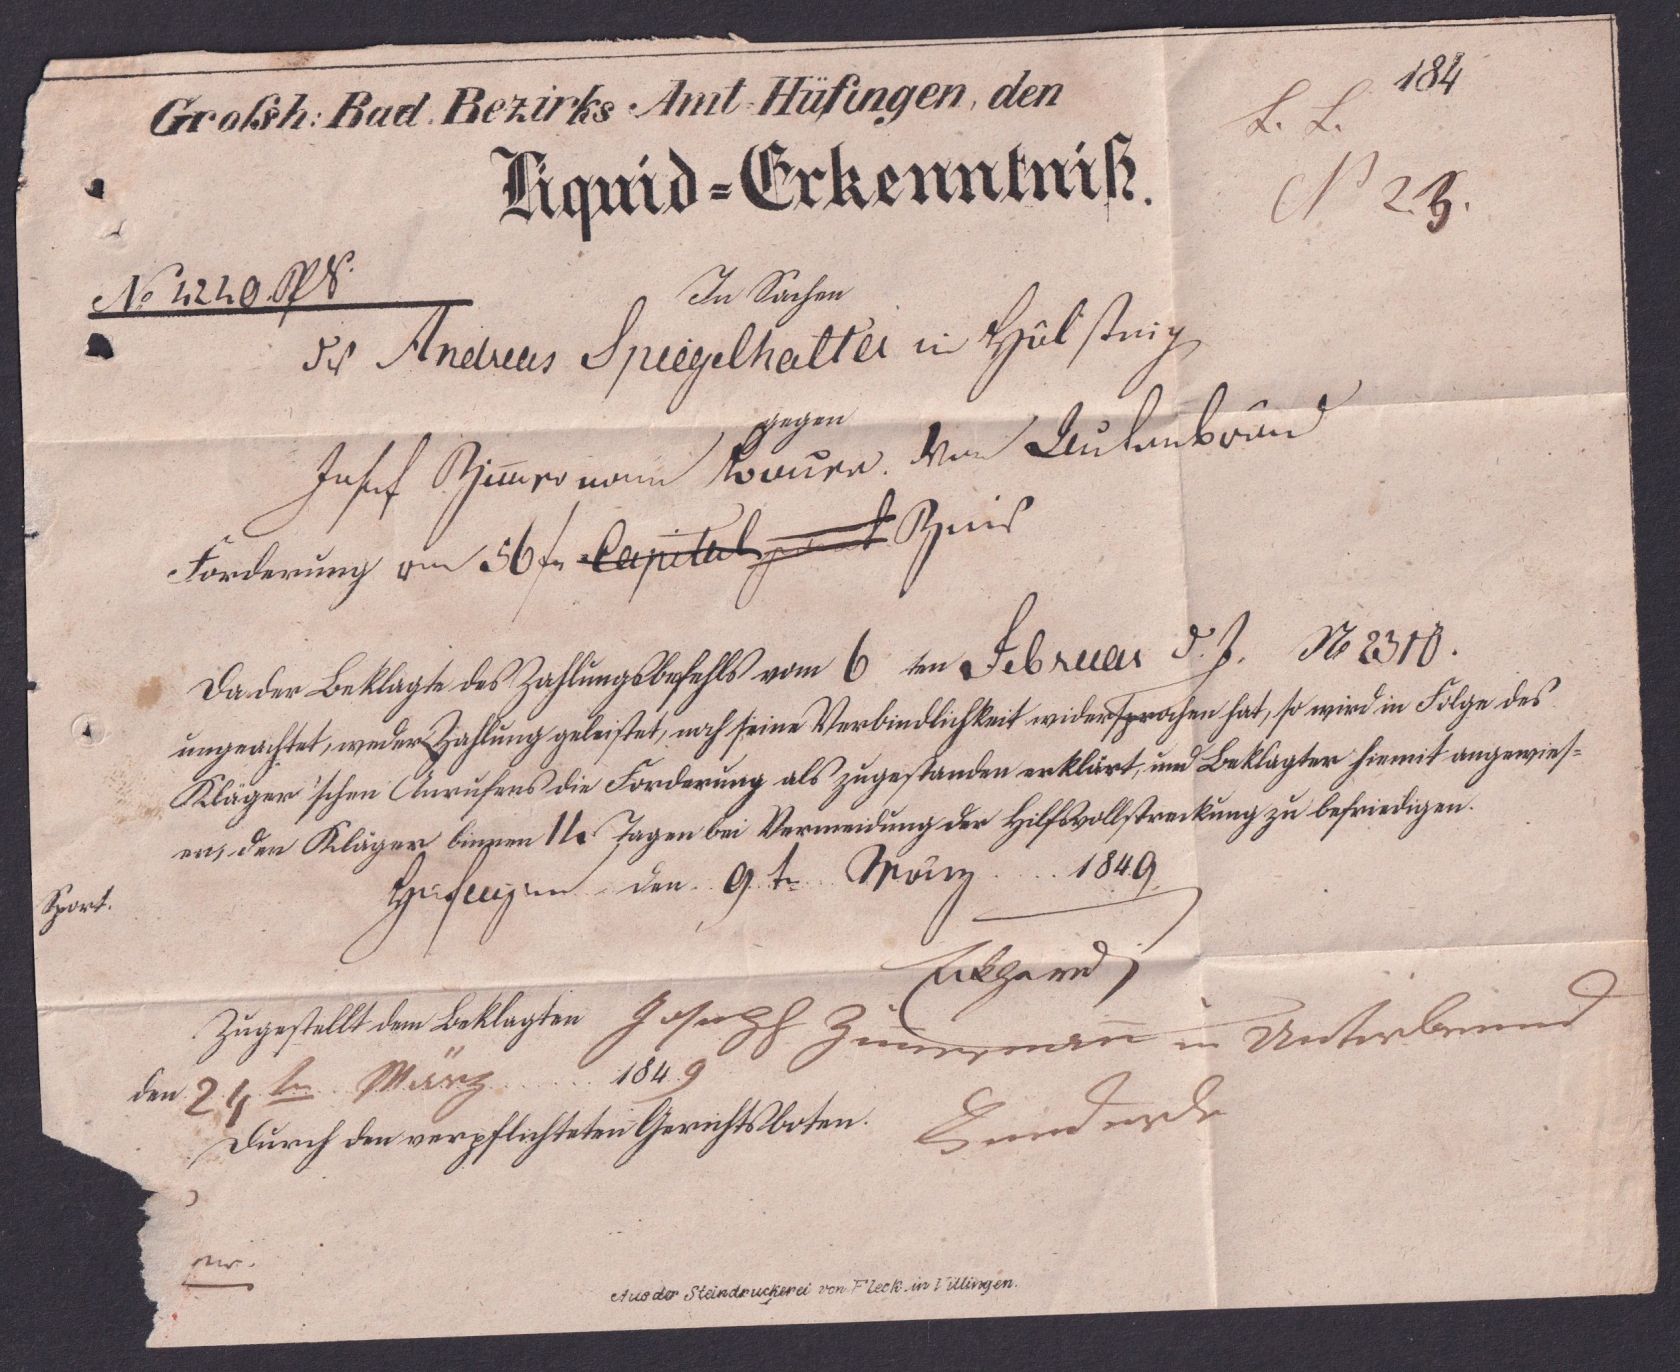 Großh: Bad. Bezirks Amt Hüfingen, den 184
L. L.
Liquid=Erkenntniß.
N 23.
No 4240.
In Sachen
des Andreas Spiegelhalter in
gegen
Josef Zimmermann Bauer. von
Forderung von 56 f Capital Zins
Da der Beklagte des Zahlungsbefehls vom 6 ten Februar d. J. No 2310.
ungeachtet, weder Zahlung geleistet, noch seine Verbindlichkeit widersprochen hat, so wird in Folge des
Kläger'schen Anrufens die Forderung als zugestanden erklärt, und Beklagter hiemit angewies=
en, den Kläger binnen 14 Tagen bei Vermeidung der Hilfsvollstreckung zu befriedigen.
Hüfingen den 9 t März 1849.
Sport.
Zugestellt dem Beklagten Joseph Zimmermann in Unterbrend
den 24 tn März 1849
Durch den verpflichteten Gerichtsboten.
Aus der Steindruckerei von Fleck in Villingen.